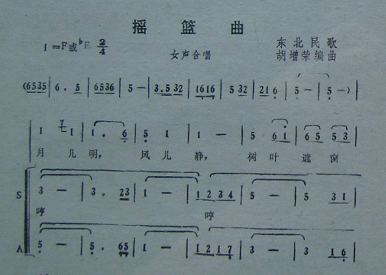 摇篮曲
1=F或♭E 2/4
女声合唱
东北民歌
胡增荣编曲
(6535 | 6. 5 | 6536 | 5 — | 3.532 | 1616 | 5 32 | 216 | 5 — | 5 —)
1 1 | 1. 6 | 5 1 | 1 — | 5 61 | 65 53
月儿明, 风儿静, 树叶遮窗
S 3 — | 3. 23 | 1 — | 1234 | 5 — | 5 31
哼 哼
A 5 — | 5. 65 | 1 — | 1217 | 3 — | 3 16